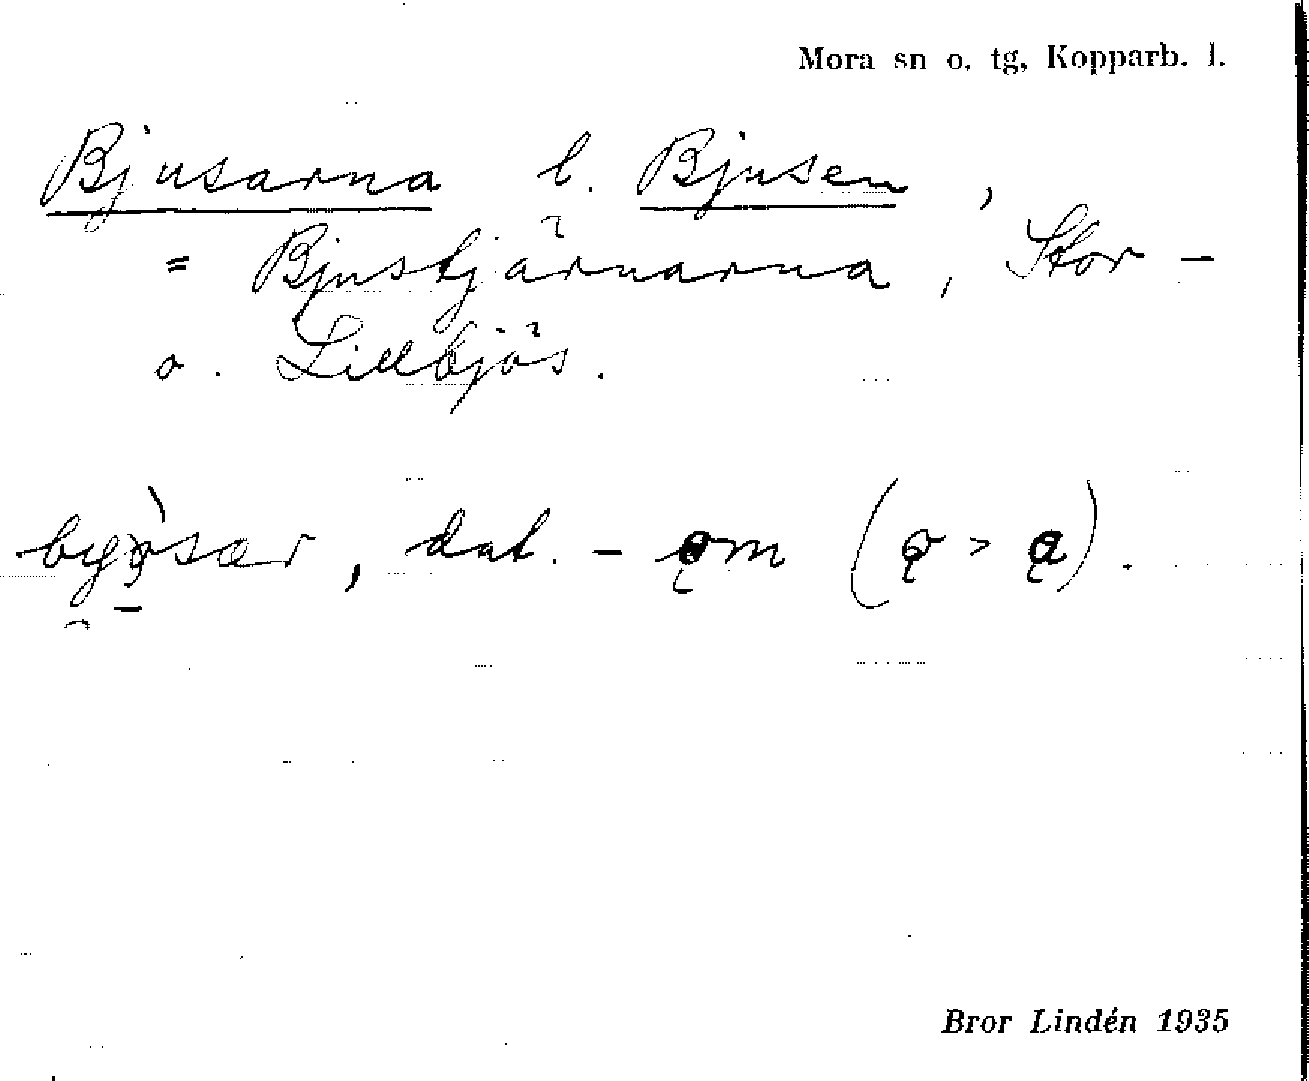 Mora sn o. tg, Kopparb. l.
Bjusarna l. Bjusen,
= Bjustjärnarna, Stor-
o. Lillbjös.
byǫ̀sær, dat. - ǫm (ǫ > ą).
Bror Lindén 1935